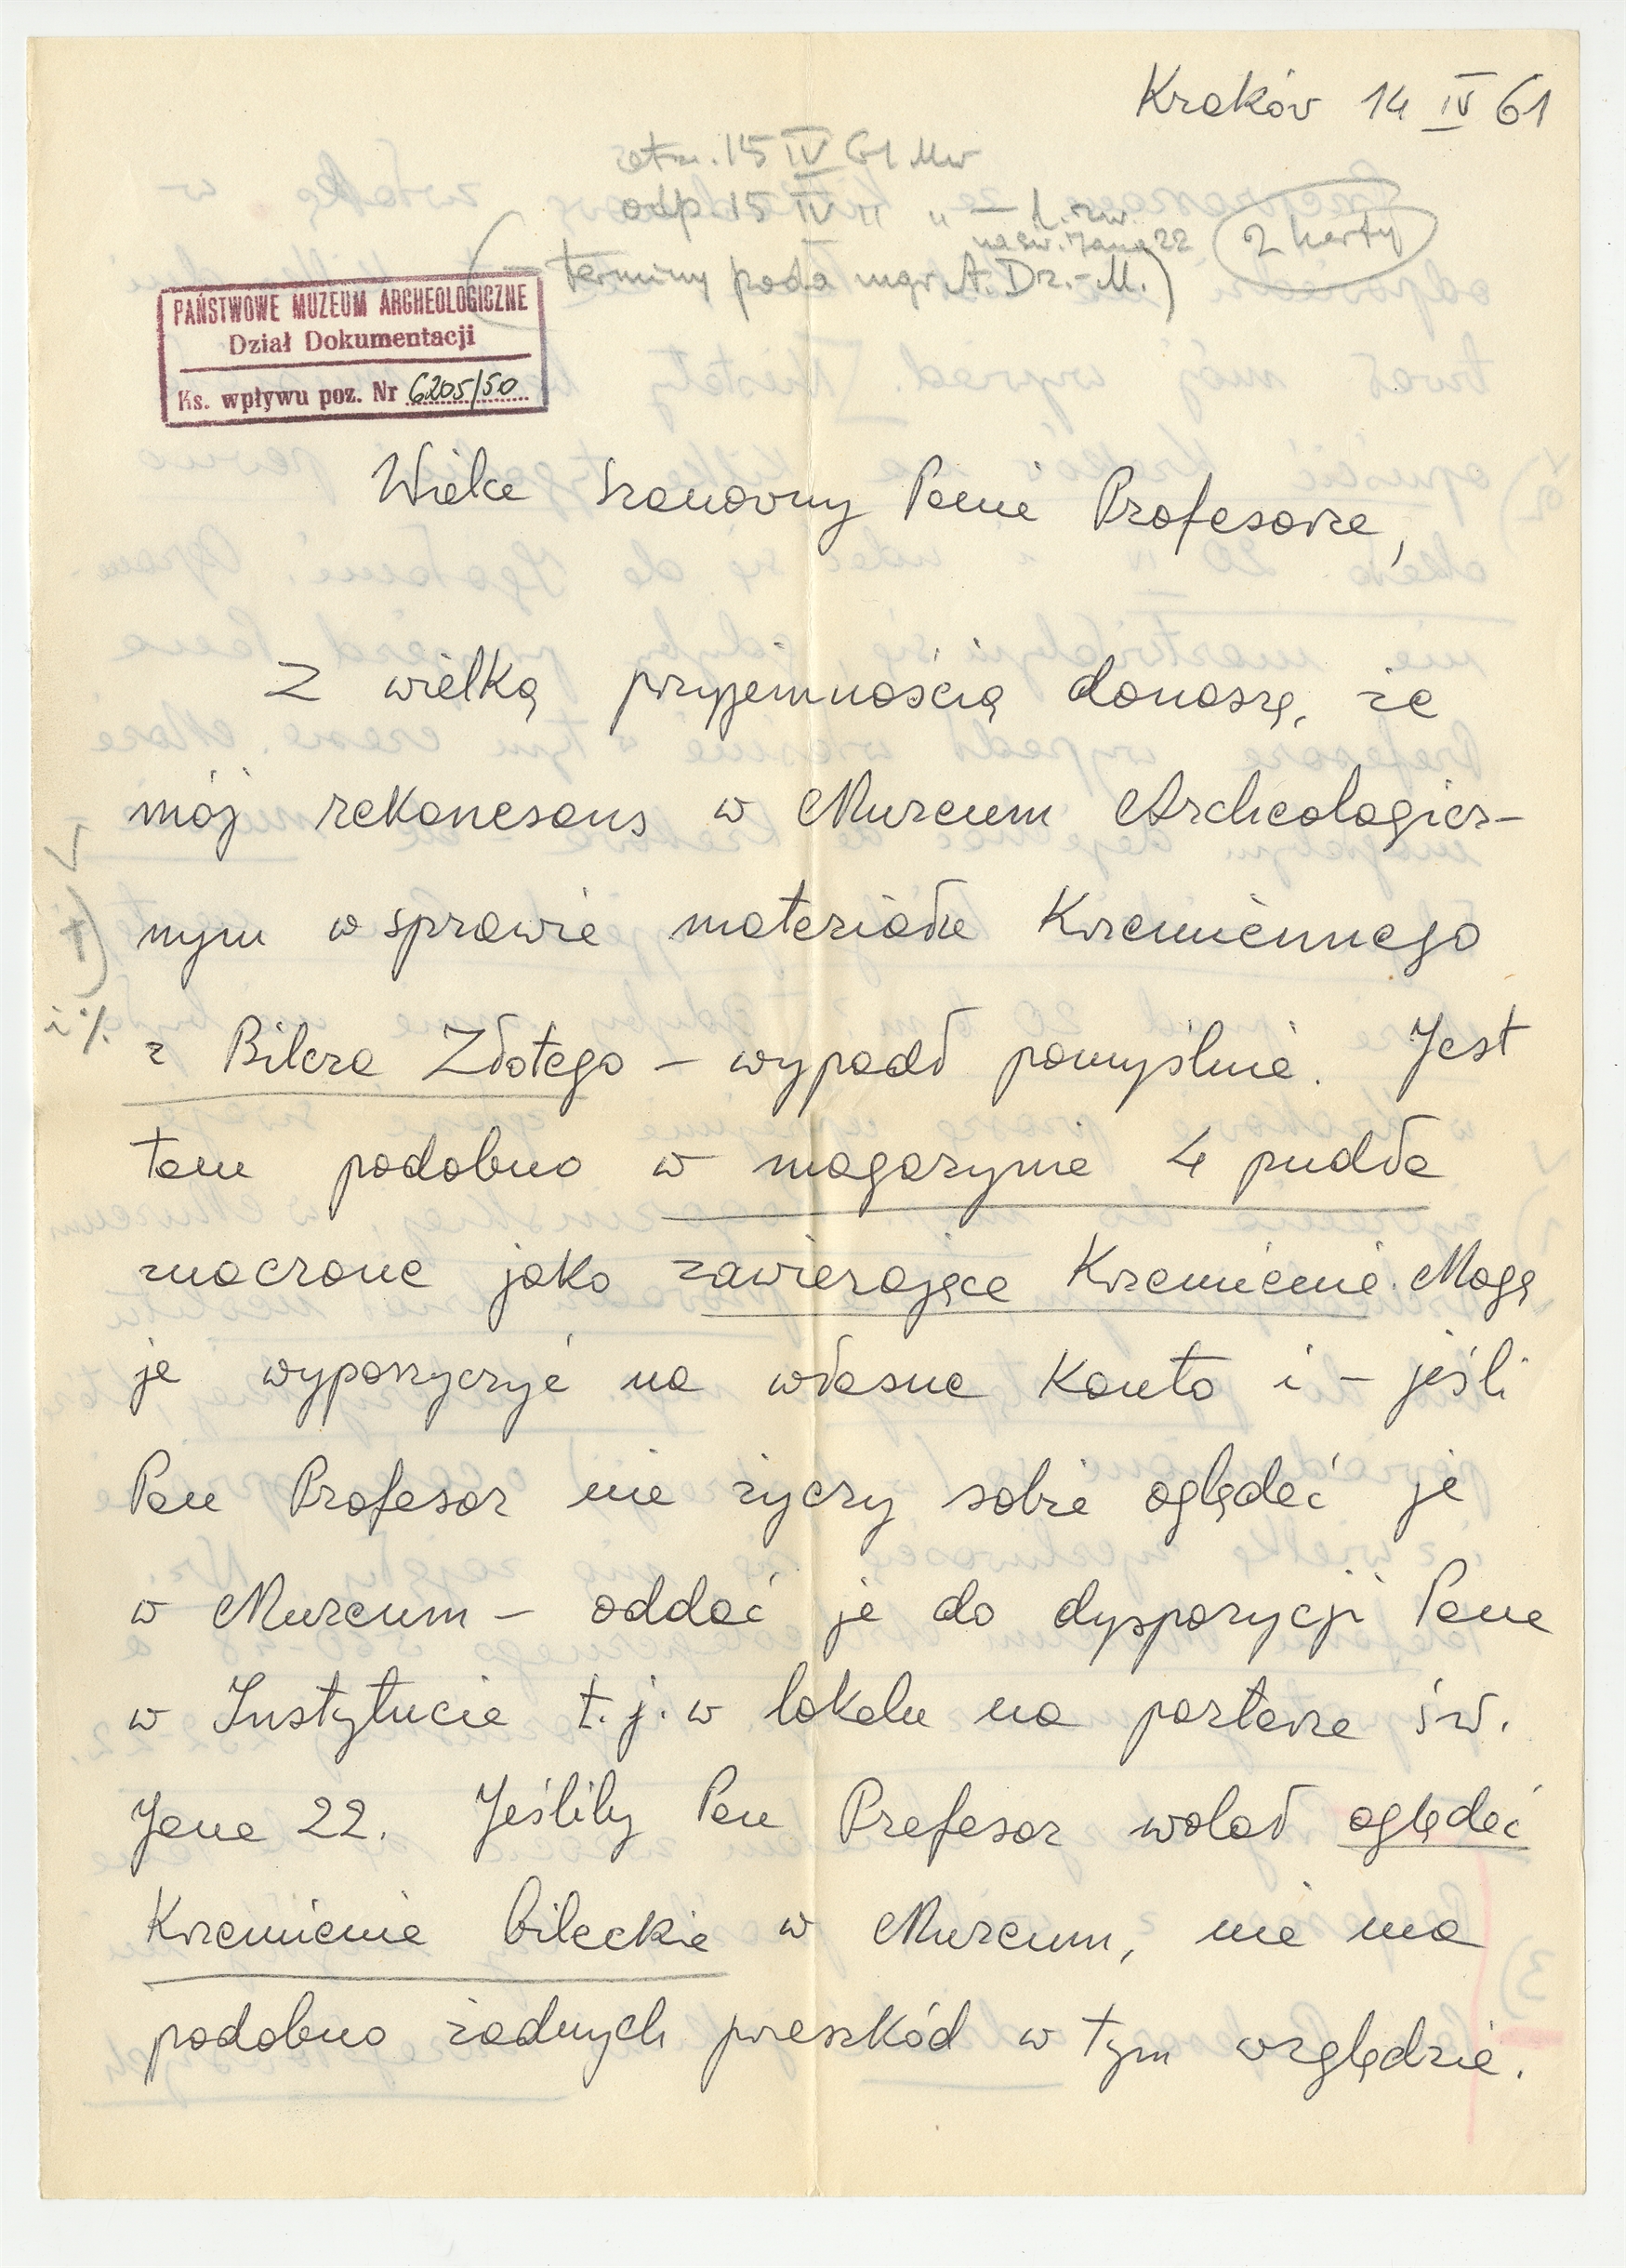 Kraków 14 IV 61
otrz. 15 IV 61 Mw
odp. 15 IV " " — 1. zw.
na św. Jana 22
2 karty
(— terminy poda mgr. A. Dz.-M.)
PAŃSTWOWE MUZEUM ARCHEOLOGICZNE
Dział Dokumentacji
Ks. wpływu poz. Nr 6205/50
Wielce Szanowny Panie Profesorze,
Z wielką przyjemnością donoszę, że
mój rekonesans w Muzeum Archeologicz-
nym w sprawie materiału Krzemiennego
z Bilcza Złotego – wypadł pomyślnie. Jest
tam podobno w magazynie 4 pudła
znaczone jako zawierające Krzemienie. Mogę
je wypożyczyć na własne Konto i – jeśli
Pan Profesor nie życzy sobie oglądać je
w Muzeum – oddać je do dyspozycji Pana
w Instytucie t.j. w lokalu na parterze św.
Jana 22. Jeśliby Pan Profesor wolał oglądać
Krzemienie bileckie w Muzeum, nie ma
podobno żadnych przeszkód w tym względzie.